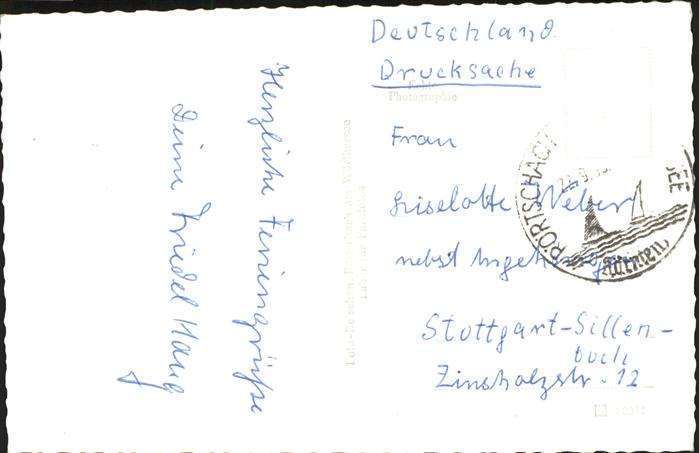 Deutschland
Drucksache
Echte
Photographie
Frau
Liselotte Weber
nebst Angehörigen
Stuttgart-Sillen-
buch
Zinsholzstr. 12
Herzliche Feriengrüße
Deine Friedel Haug
PÖRTSCHACH SEE
Kärnten